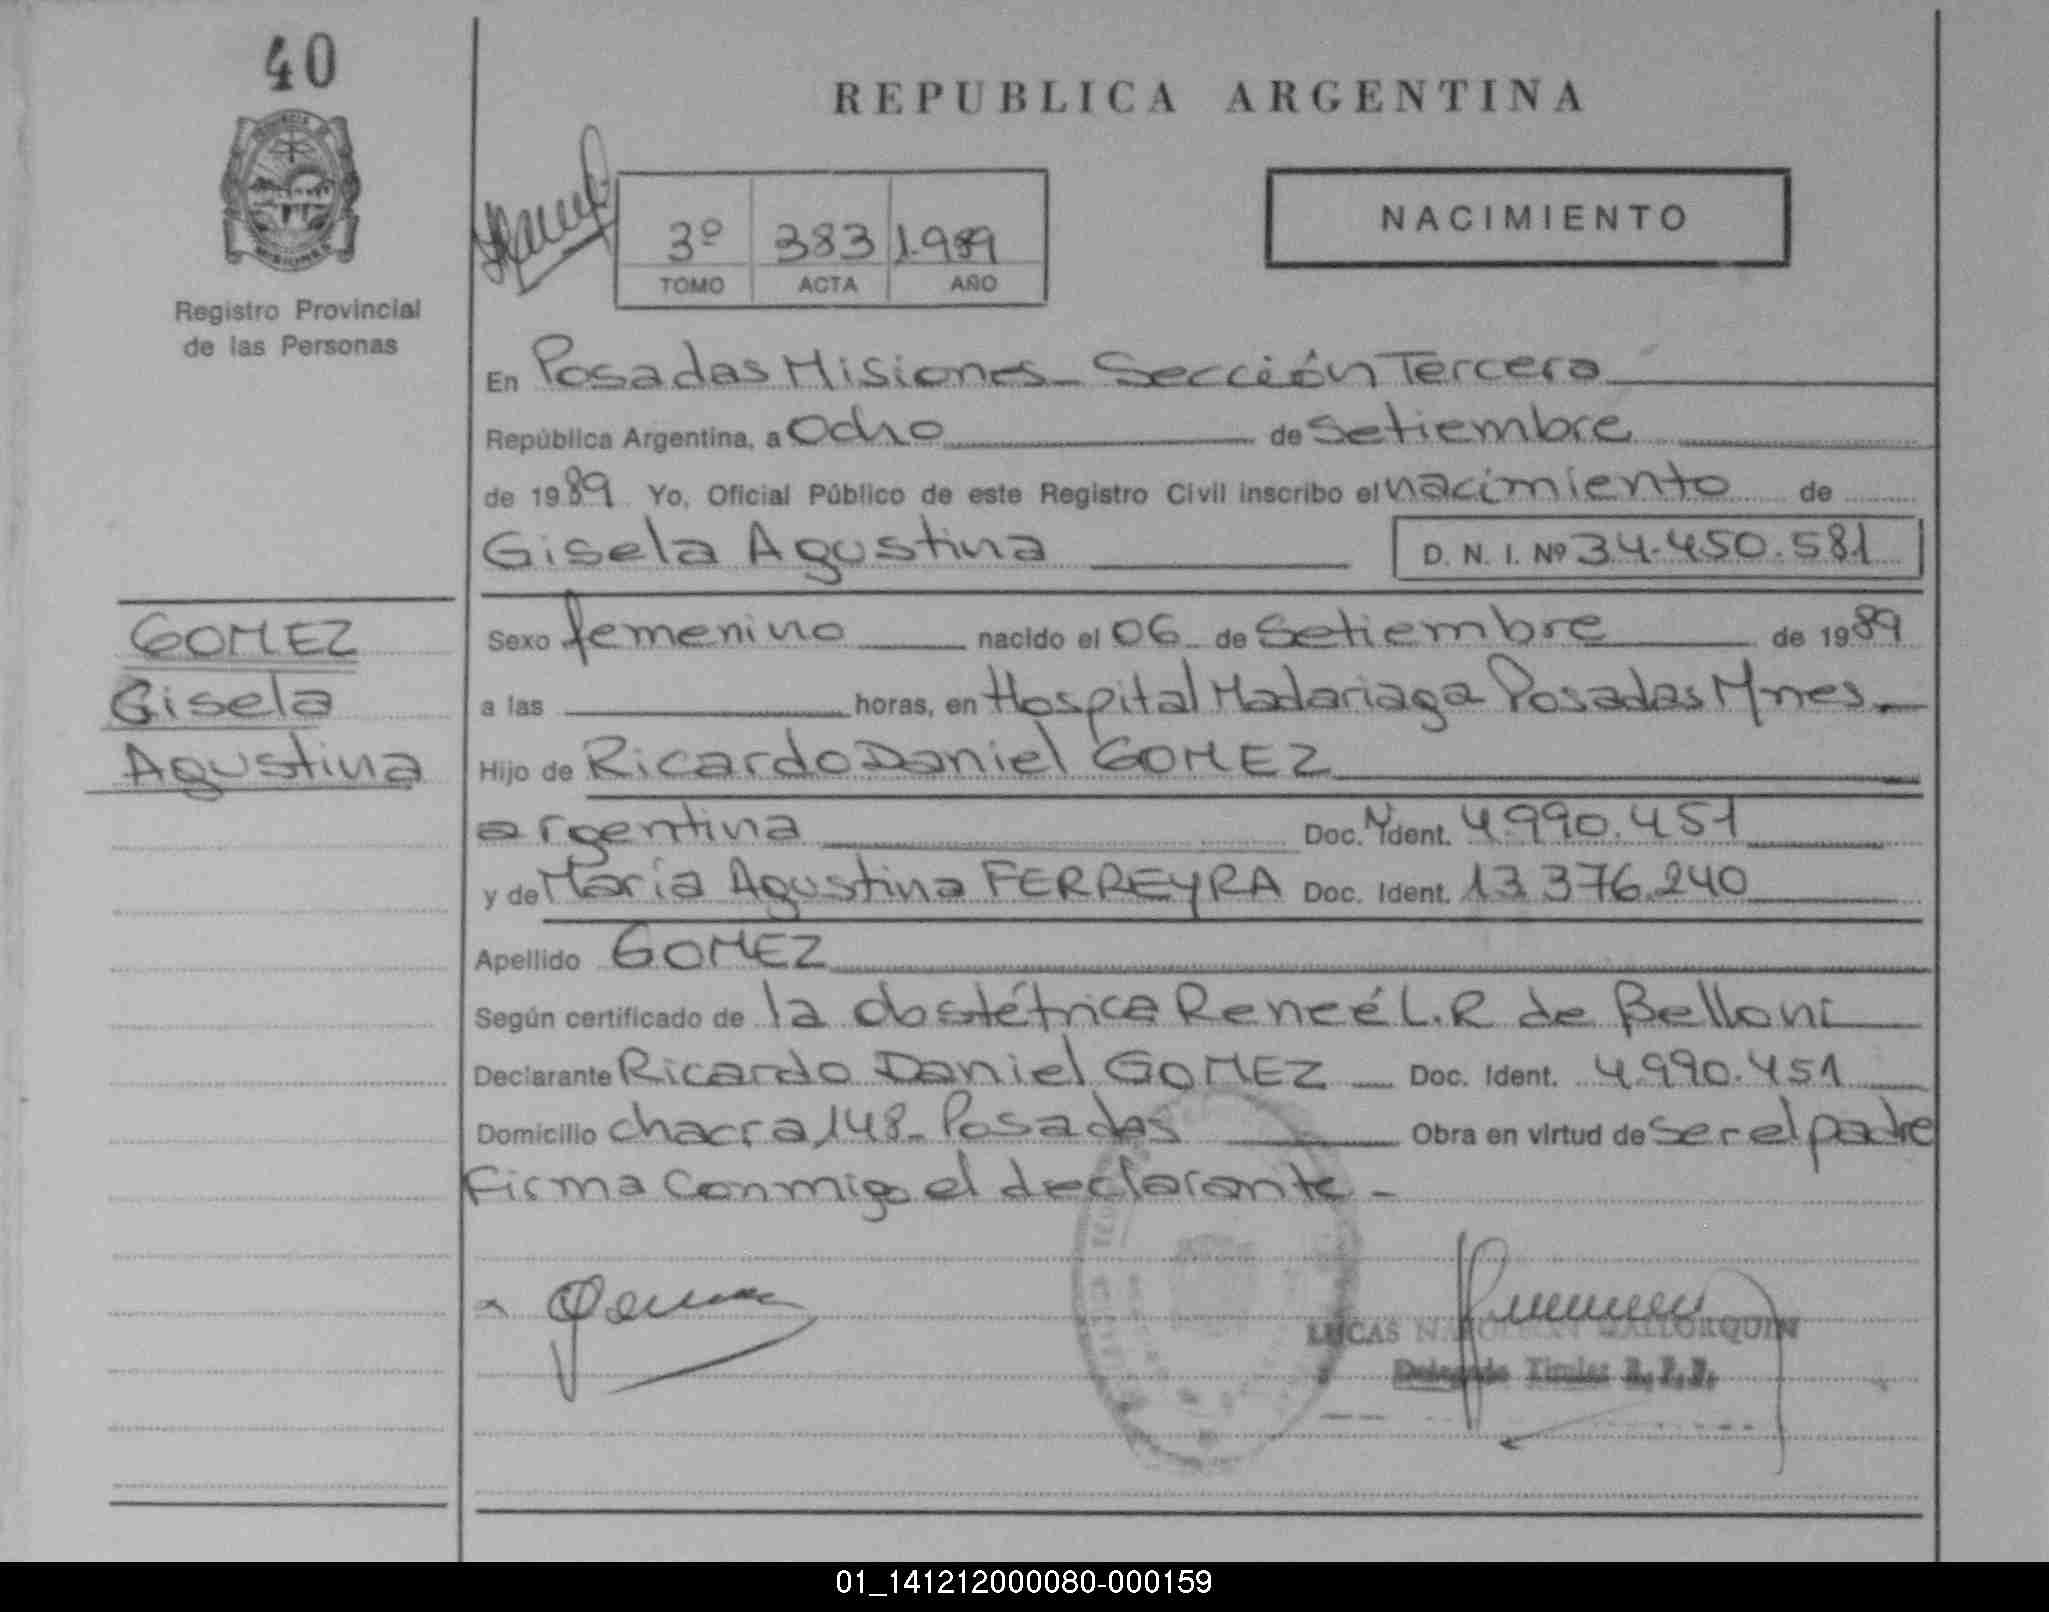 40
REPUBLICA ARGENTINA
PROVINCIA DE
MISIONES
Registro Provincial
de las Personas
3º 383 1.989
TOMO ACTA AÑO
NACIMIENTO
En Posadas Misiones_ Sección Tercera
República Argentina, a Ocho de Setiembre
de 1989 Yo, Oficial Público de este Registro Civil inscribo el nacimiento de
Gisela Agustina D. N. I. Nº 34.450.581
GOMEZ
Gisela
Agustina
Sexo femenino nacido el 06 de Setiembre de 1989
a las horas, en Hospital Madariaga Posadas Mnes.
Hijo de Ricardo Daniel GOMEZ
argentina Doc. Ident. 4.990.451
y de María Agustina FERREYRA Doc. Ident. 13.376.240
Apellido GOMEZ
Según certificado de la obstétrica Reneé L.R de Belloni
Declarante Ricardo Daniel GOMEZ Doc. Ident. 4.990.451
Domicilio chacra 148_ Posadas Obra en virtud de ser el padre
Firma conmigo el declarante -
LUCAS NAPOLEON MALLORQUIN
Delegado Titular R. P. P.
01_141212000080-000159